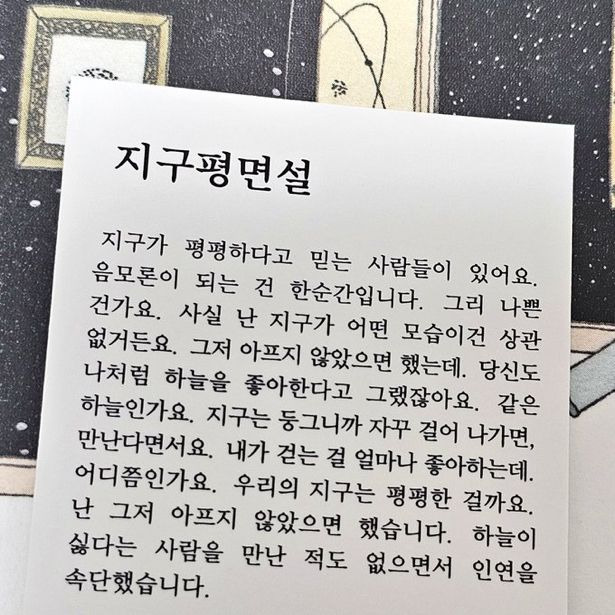 지구평면설
지구가 평평하다고 믿는 사람들이 있어요.
음모론이 되는 건 한순간입니다. 그리 나쁜
건가요. 사실 난 지구가 어떤 모습이건 상관
없거든요. 그저 아프지 않았으면 했는데. 당신도
나처럼 하늘을 좋아한다고 그랬잖아요. 같은
하늘인가요. 지구는 둥그니까 자꾸 걸어 나가면,
만난다면서요. 내가 걷는 걸 얼마나 좋아하는데.
어디쯤인가요. 우리의 지구는 평평한 걸까요.
난 그저 아프지 않았으면 했습니다. 하늘이
싫다는 사람을 만난 적도 없으면서 인연을
속단했습니다.